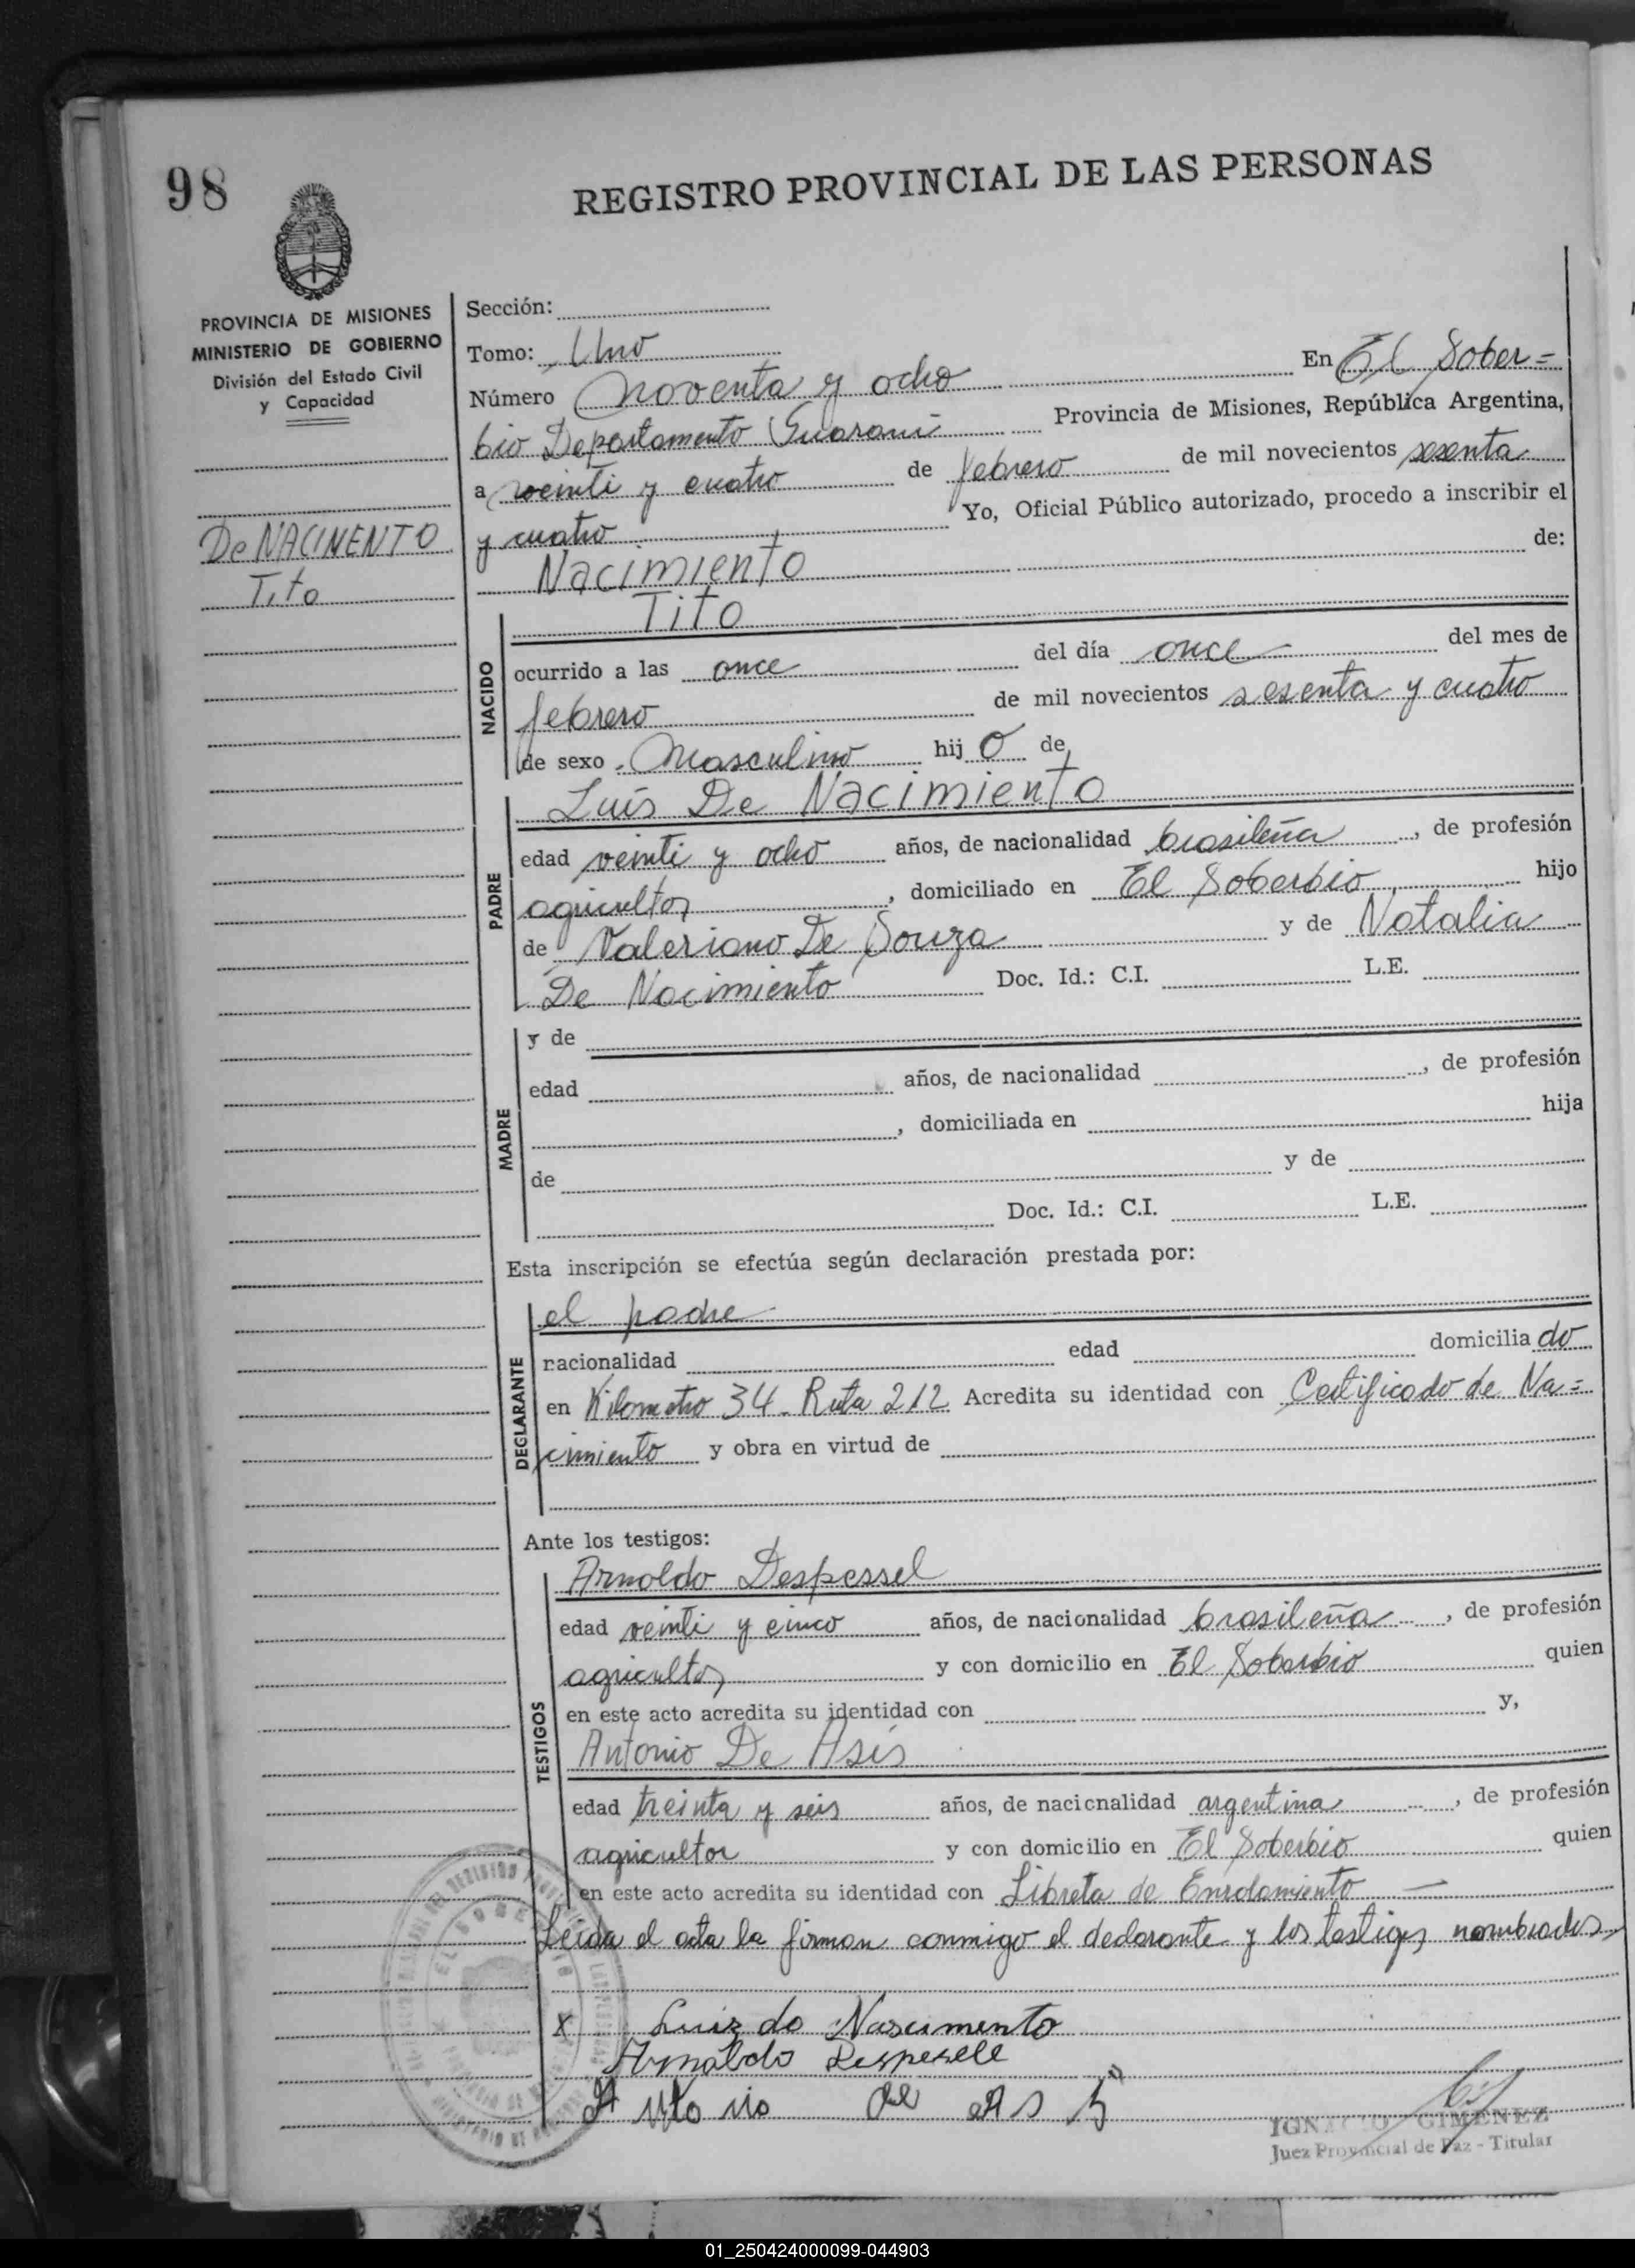 98
REGISTRO PROVINCIAL DE LAS PERSONAS
PROVINCIA DE MISIONES
MINISTERIO DE GOBIERNO
División del Estado Civil
y Capacidad
De NACINENTO
Tito
Sección:
Tomo: Uno
Número noventa y ocho En El Sober=
bio Departamento Guarani Provincia de Misiones, República Argentina,
a veinti y cuatro de febrero de mil novecientos sesenta
y cuatro Yo, Oficial Público autorizado, procedo a inscribir el
Nacimiento de:
Tito
NACIDO
ocurrido a las once del día once del mes de
febrero de mil novecientos sesenta y cuatro
de sexo Masculino hij o de
PADRE
Luis De Nacimiento
edad veinti y ocho años, de nacionalidad brasileña, de profesión
agricultor, domiciliado en El Soberbio hijo
de Valeriano De Souza y de Natalia
De Nacimiento Doc. Id.: C.I. L.E.
MADRE
y de
edad años, de nacionalidad , de profesión
, domiciliada en hija
de y de
Doc. Id.: C.I. L.E.
Esta inscripción se efectúa según declaración prestada por:
DECLARANTE
el padre
nacionalidad edad domicilia do
en Kilometro 34 - Ruta 212 Acredita su identidad con Certificado de Na=
cimiento y obra en virtud de
Ante los testigos:
TESTIGOS
Arnoldo Despessel
edad veinti y cinco años, de nacionalidad brasileña, de profesión
agricultor y con domicilio en El Soberbio quien
en este acto acredita su identidad con y,
Antonio De Asís
edad treinta y seis años, de nacionalidad argentina, de profesión
agricultor y con domicilio en El Soberbio quien
en este acto acredita su identidad con Libreta de Enrolamiento —
Leída el acta la firman conmigo el declarante y los testigos nombrados
X Luiz do Nascimento
Arnoldo
Antonio de
IGNACIO GIMENEZ
Juez Provincial de Paz - Titular
01_250424000099-044903